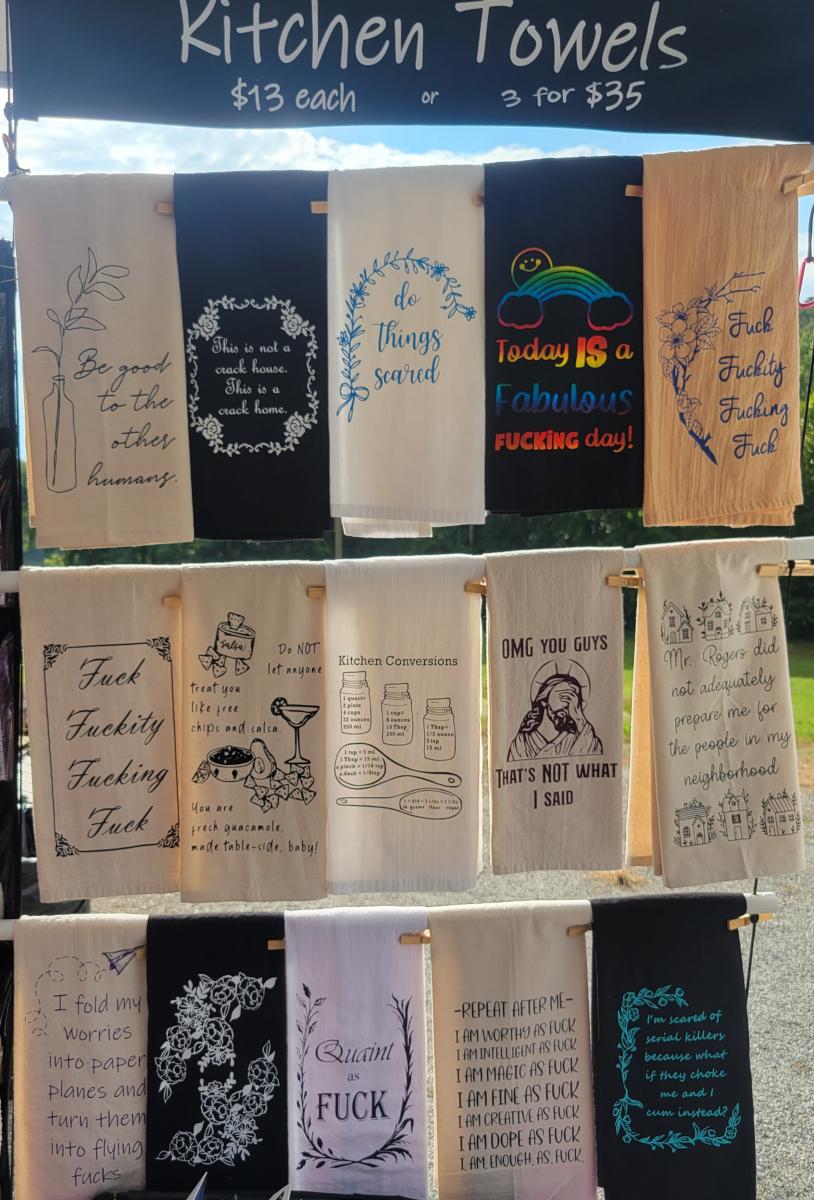 Kitchen Towels
$13 each or 3 for $35
Be good
to the
other
humans.
This is not a
crack house.
This is a
crack home.
do
Things
scared
Today IS a
Fabulous
FUCKING day!
Fuck
Fuckity
Fucking
Fuck
Fuck
Fuckity
Fucking
Fuck
Salsa
Do NOT
let anyone
treat you
like free
chips and salsa.
You are
fresh guacamole,
made table-side, baby!
Kitchen Conversions
1 quart=
2 pints
4 cups
32 ounces
950 ml
1 cup=
8 ounces
16 Tbsp
250 ml
1 Tbsp=
1/2 ounce
3 tsp
15 ml
1 tsp = 5 ml
1 Tbsp = 15 ml
a pinch = 1/16 tsp
a dash = 1/8 tsp
OMG YOU GUYS
THAT'S NOT WHAT
I SAID
Mr. Rogers did
not adequately
prepare me for
the people in my
neighborhood
I fold my
worries
into paper
planes and
turn them
into flying
fucks
Quaint
as
FUCK
-REPEAT AFTER ME-
I AM WORTHY AS FUCK
I AM INTELLIGENT AS FUCK
I AM MAGIC AS FUCK
I AM FINE AS FUCK
I AM CREATIVE AS FUCK
I AM DOPE AS FUCK
I. AM. ENOUGH. AS. FUCK.
I'm scared of
serial killers
because what
if they choke
me and I
cum instead?